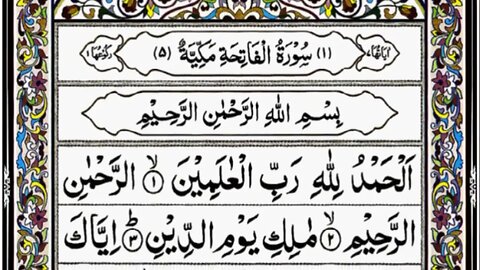 اٰیاتها۷ (۱) سُوْرَةُ الْفَاتِحَةِ مَكِّیَّةٌ (۵) رکوعها۱
بِسْمِ اللهِ الرَّحْمٰنِ الرَّحِیْمِ
اَلْحَمْدُ لِلّٰهِ رَبِّ الْعٰلَمِیْنَ ۙ﴿۱﴾ الرَّحْمٰنِ
الرَّحِیْمِ ۙ﴿۲﴾ مٰلِكِ یَوْمِ الدِّیْنِ ؕ﴿۳﴾ اِیَّاكَ